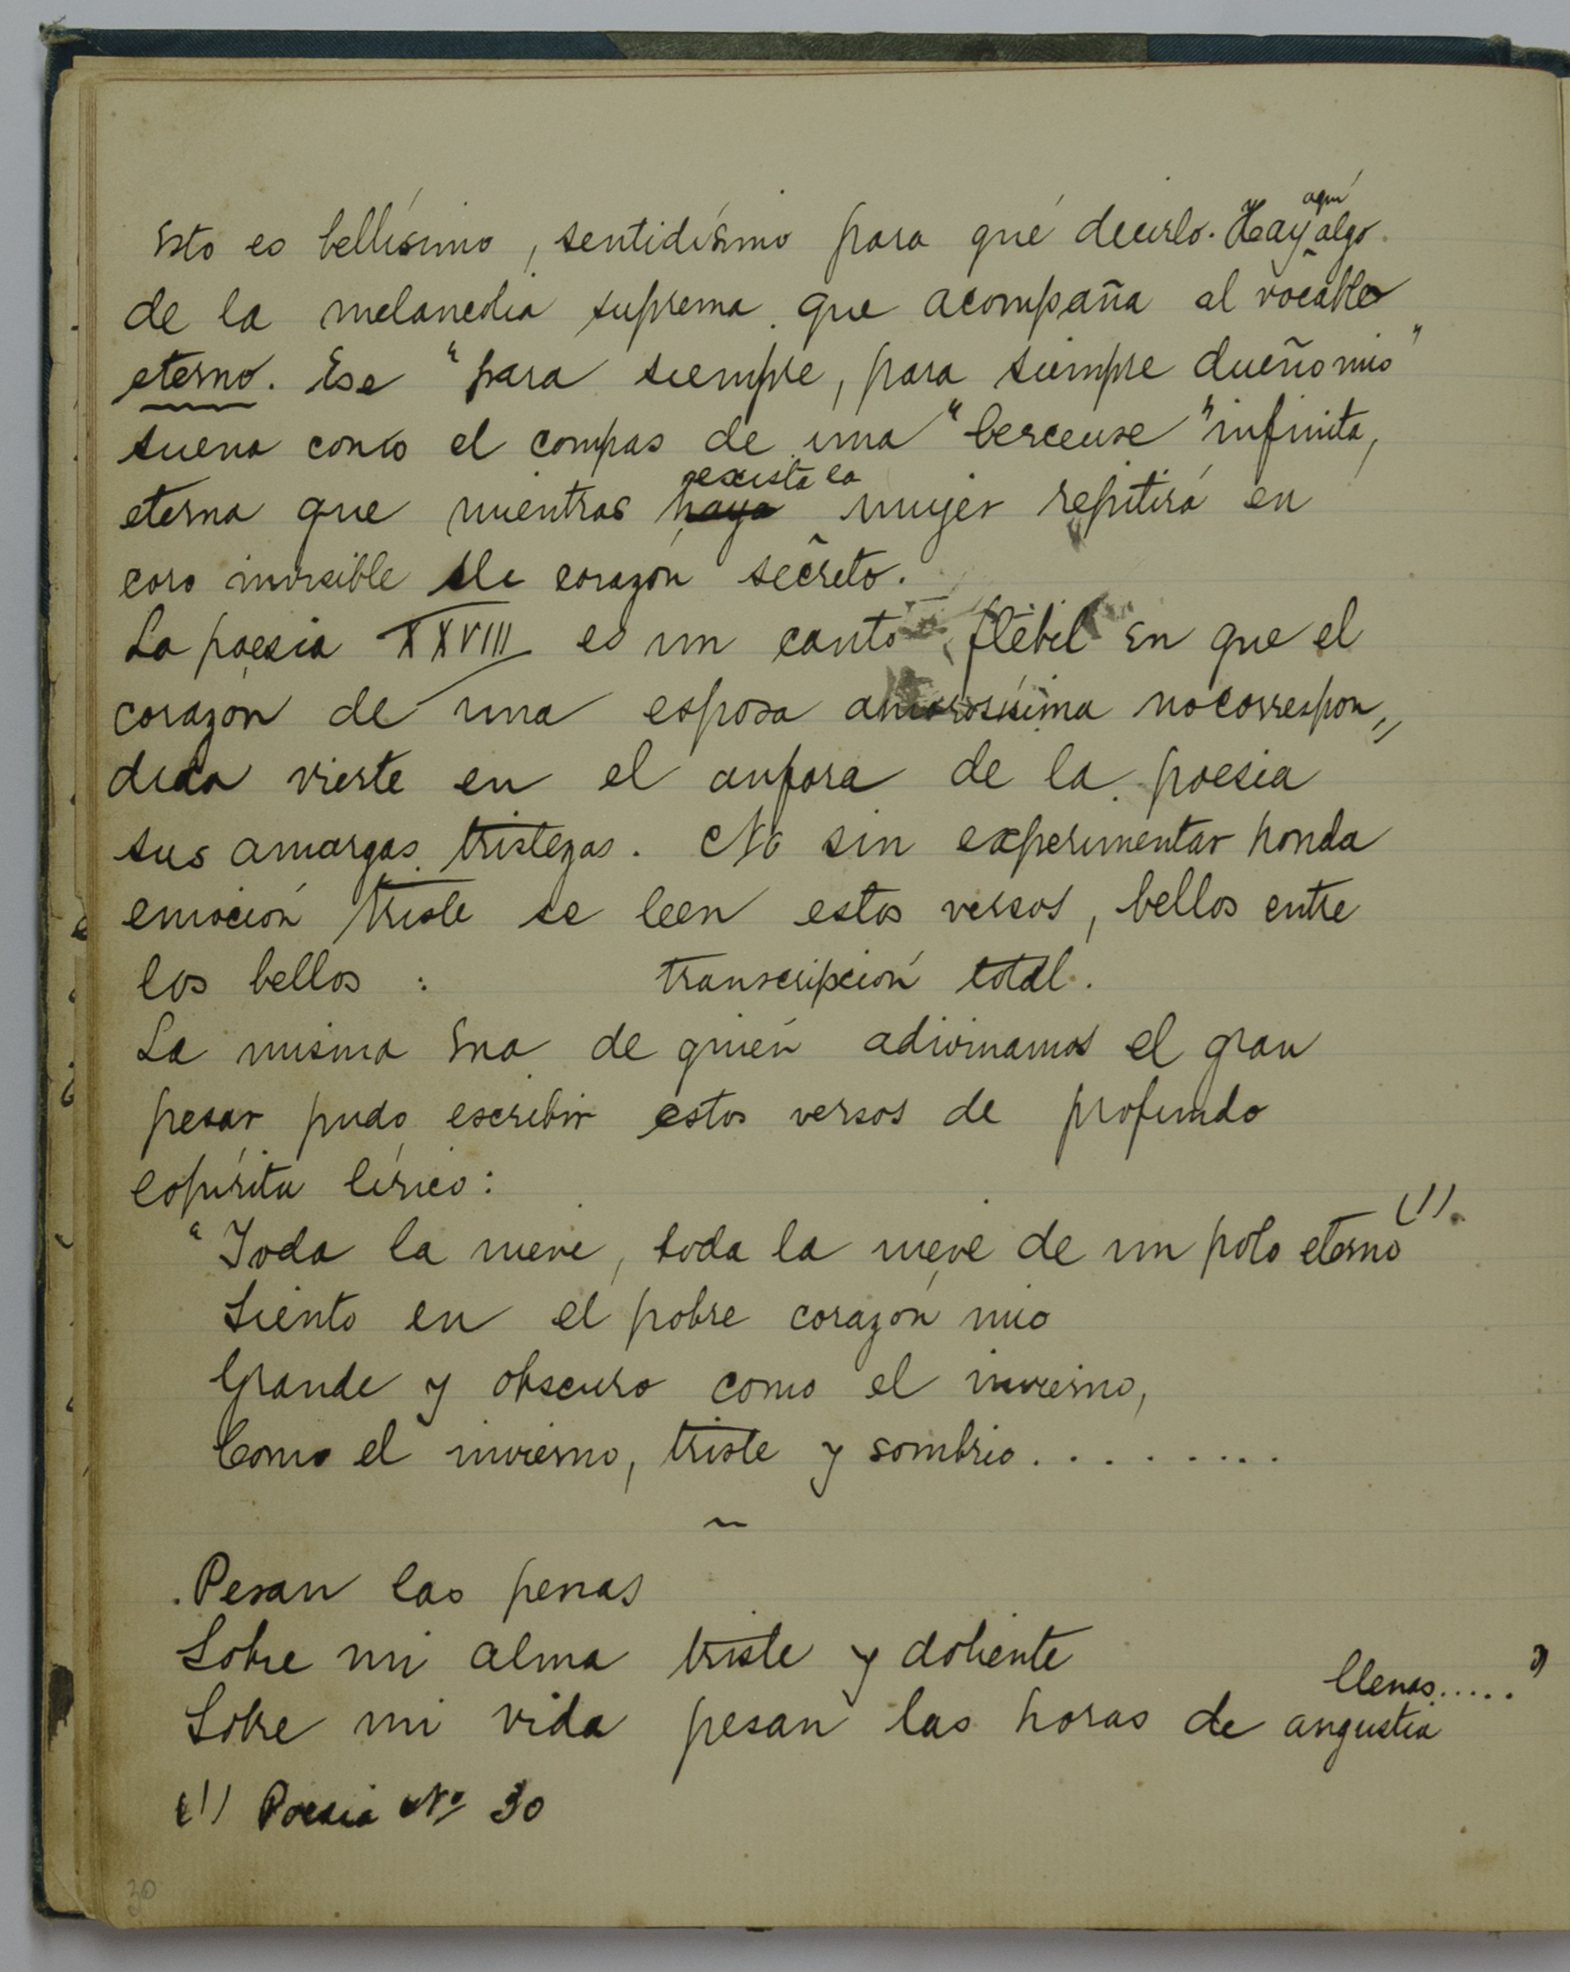 Esto es bellísimo, sentidísimo para qué decirlo. Hay aquí algo
de la melancolia suprema que acompaña al vocablo
eterno. Ese "para siempre, para siempre dueño mio"
suena como el compas de una "berceuse" infinita,
eterna que mientras haya exista la mujer repitirá en
coro invisible su corazón secreto.
La poesia XXVIII es un canto flébil en que el
corazón de una esposa amorosísima no correspon„
dida vierte en el anfora de la poesia
sus amargas tristezas. No sin experimentar honda
emoción triste se leen estos versos, bellos entre
los bellos : transcripción total.
La misma Sra de quién adivinamos el gran
pesar pudo escribir estos versos de profundo
espíritu lírico:
"Toda la nieve, toda la nieve de un polo eterno (1)
Siento en el pobre corazón mio
Grande y obscuro como el invierno,
Como el invierno, triste y sombrio. . . . . . . .
~
Pesan las penas
Sobre mi alma triste y doliente
Sobre mi vida pesan las horas de angustia llenas....."
(1) Poesia Nº 30
30